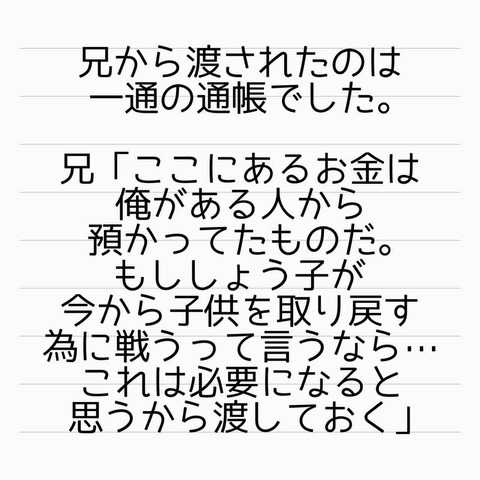 兄から渡されたのは
一通の通帳でした。
兄「ここにあるお金は
俺がある人から
預かってたものだ。
もししょう子が
今から子供を取り戻す
為に戦うって言うなら…
これは必要になると
思うから渡しておく」